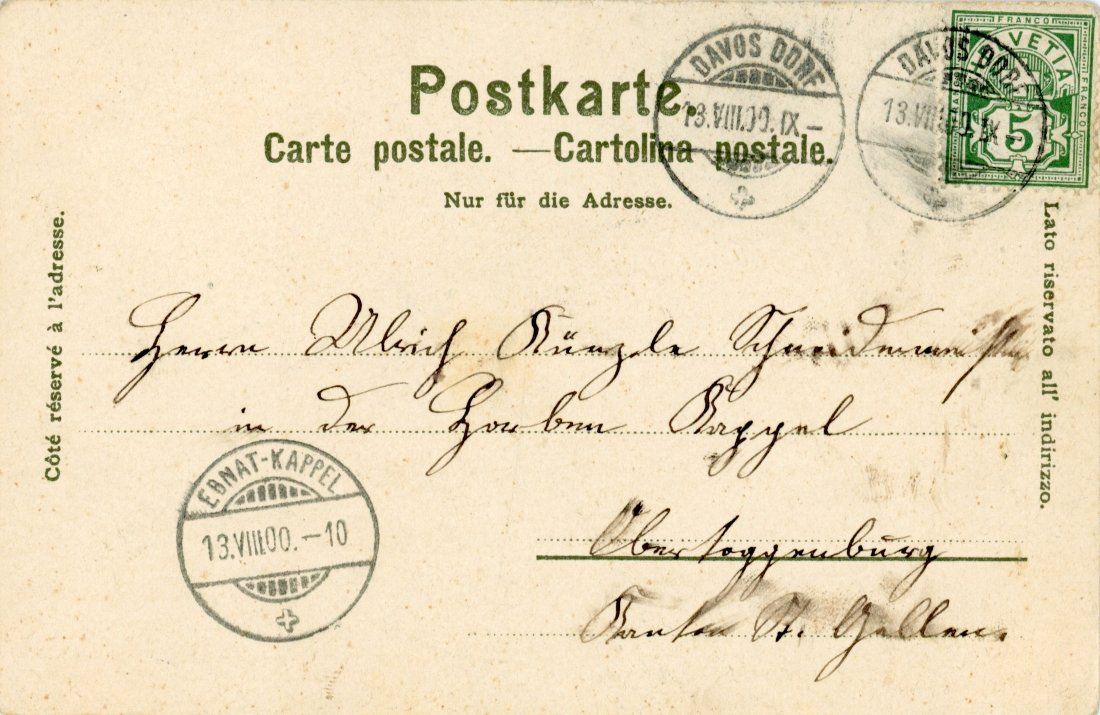 Postkarte.
Carte postale. — Cartolina postale.
Nur für die Adresse.
DAVOS DORF
13.VIII.00.IX–
DAVOS DORF
13.VIII.00.IX–
FRANCO
HELVETIA
FRANCO
FRANCO
5
Côté réservé à l'adresse.
Lato riservato all' indirizzo.
Herrn Ulrich Künzle Schneidermeister
in der Horben Kappel
Obertoggenburg
Kanton St. Gallen.
EBNAT-KAPPEL
13.VIII.00.–10